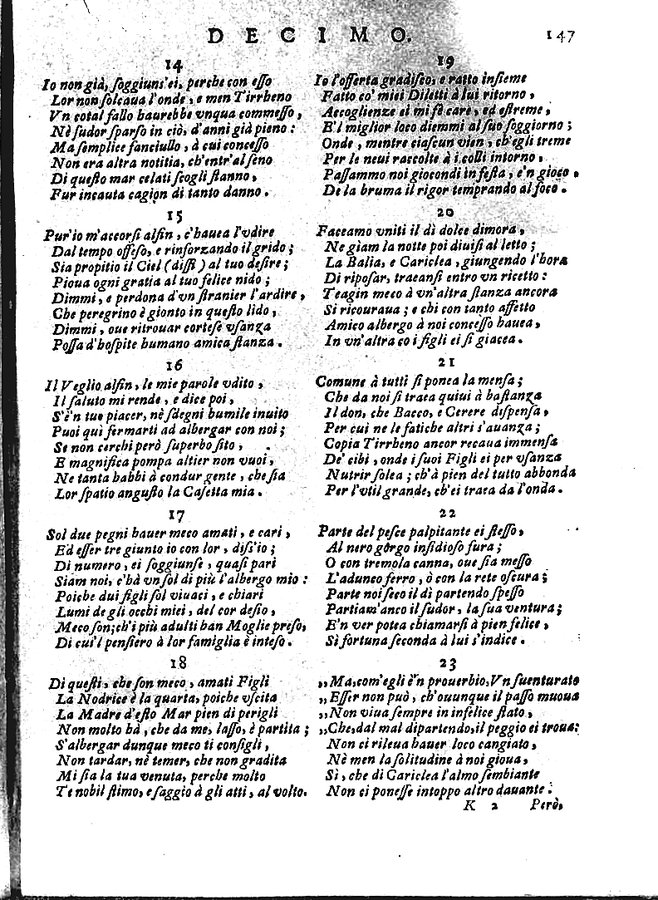 DECIMO. 147
14
Io non già, ſoggiunſ'ei, perche con eſſo
Lor non ſolcaua l'onde, e men Tirrheno
Vn cotal fallo haurebbe vnqua commeſſo,
Nè ſudor ſparſo in ciò, d'anni già pieno:
Ma ſemplice fanciullo, à cui conceſſo
Non era altra notitia, ch'entr'al ſeno
Di queſto mar celati ſcogli ſtanno,
Fur incauta cagion di tanto danno.
15
Pur'io m'accorſi alfin, c'hauea l'vdire
Dal tempo offeſo, e rinforzando il grido;
Sia propitio il Ciel (diſſi) al tuo deſire;
Pioua ogni gratia al tuo felice nido;
Dimmi, e perdona d'vn ſtranier l'ardire,
Che peregrino è gionto in queſto lido,
Dimmi, oue ritrouar corteſe vſanza
Poſſa d'hoſpite humano amica ſtanza.
16
Il Veglio alfin, le mie parole vdito,
Il ſaluto mi rende, e dice poi,
S'è'n tuo piacer, nè ſdegni humile inuito
Puoi quì fermarti ad albergar con noi;
Se non cerchi però ſuperbo ſito,
E magnifica pompa altier non vuoi,
Ne tanta habbi à condur gente, che ſia
Lor ſpatio anguſto la Caſetta mia.
17
Sol due pegni hauer meco amati, e cari,
Ed eſſer tre giunto io con lor, diſſ'io;
Di numero, ei ſoggiunſe, quaſi pari
Siam noi, c'hà vn ſol di più l'albergo mio:
Poiche duo figli ſol viuaci, e chiari
Lumi de gli occhi miei, del cor deſio,
Meco ſon; ch'i più adulti han Moglie preſo,
Di cui'l penſiero à lor famiglia è inteſo.
18
Di queſti, che ſon meco, amati Figli
La Nodrice è la quarta, poiche vſcita
La Madre d'eſto Mar pien di perigli
Non molto hà, che da me, laſſo, è partita;
S'albergar dunque meco ti conſigli,
Non tardar, nè temer, che non gradita
Mi ſia la tua venuta, perche molto
Te nobil ſtimo, e ſaggio à gli atti, al volto.
19
Io l'offerta gradiſco, e ratto inſieme
Fatto co' miei Diletti à lui ritorno,
Accoglienze ei mi fè care, ed eſtreme,
E'l miglior loco diemmi al ſuo ſoggiorno;
Onde, mentre ciaſcun vien, ch'egli treme
Per le neui raccolte à i colli intorno,
Paſſammo noi giocondi in feſta, e'n gioco,
De la bruma il rigor temprando al foco.
20
Faceamo vniti il dì dolce dimora,
Ne giam la notte poi diuiſi al letto;
La Balia, e Cariclea, giungendo l'hora
Di ripoſar, traeanſi entro vn ricetto:
Teagin meco à vn'altra ſtanza ancora
Si ricouraua; e chi con tanto affetto
Amico albergo à noi conceſſo hauea,
In vn'altra co i figli ei ſi giacea.
21
Comune à tutti ſi ponea la menſa;
Che da noi ſi traea quiui à baſtanza
Il don, che Bacco, e Cerere diſpenſa,
Per cui ne le fatiche altri s'auanza;
Copia Tirrheno ancor recaua immenſa
De' cibi, onde i ſuoi Figli ei per vſanza
Nutrir ſolea; ch'à pien del tutto abbonda
Per l'vtil grande, ch'ei traea da l'onda.
22
Parte del peſce palpitante ei ſteſſo,
Al nero gorgo inſidioſo fura;
O con tremola canna, oue ſia meſſo
L'adunco ferro, ò con la rete oſcura;
Parte noi ſeco il dì partendo ſpeſſo
Partiam'anco il ſudor, la ſua ventura;
E'n ver potea chiamarſi à pien felice,
Si fortuna ſeconda à lui s'indice.
23
„Ma, com'egli è'n prouerbio, Vn ſuenturato
„Eſſer non può, ch'ouunque il paſſo muoua
„Non viua ſempre in infelice ſtato,
„Che, dal mal dipartendo, il peggio ei troua:
Non ci rileua hauer loco cangiato,
Nè men la ſolitudine à noi gioua,
Sì, che di Cariclea l'almo ſembiante
Non ci poneſſe intoppo altro dauante.
K 2 Però,